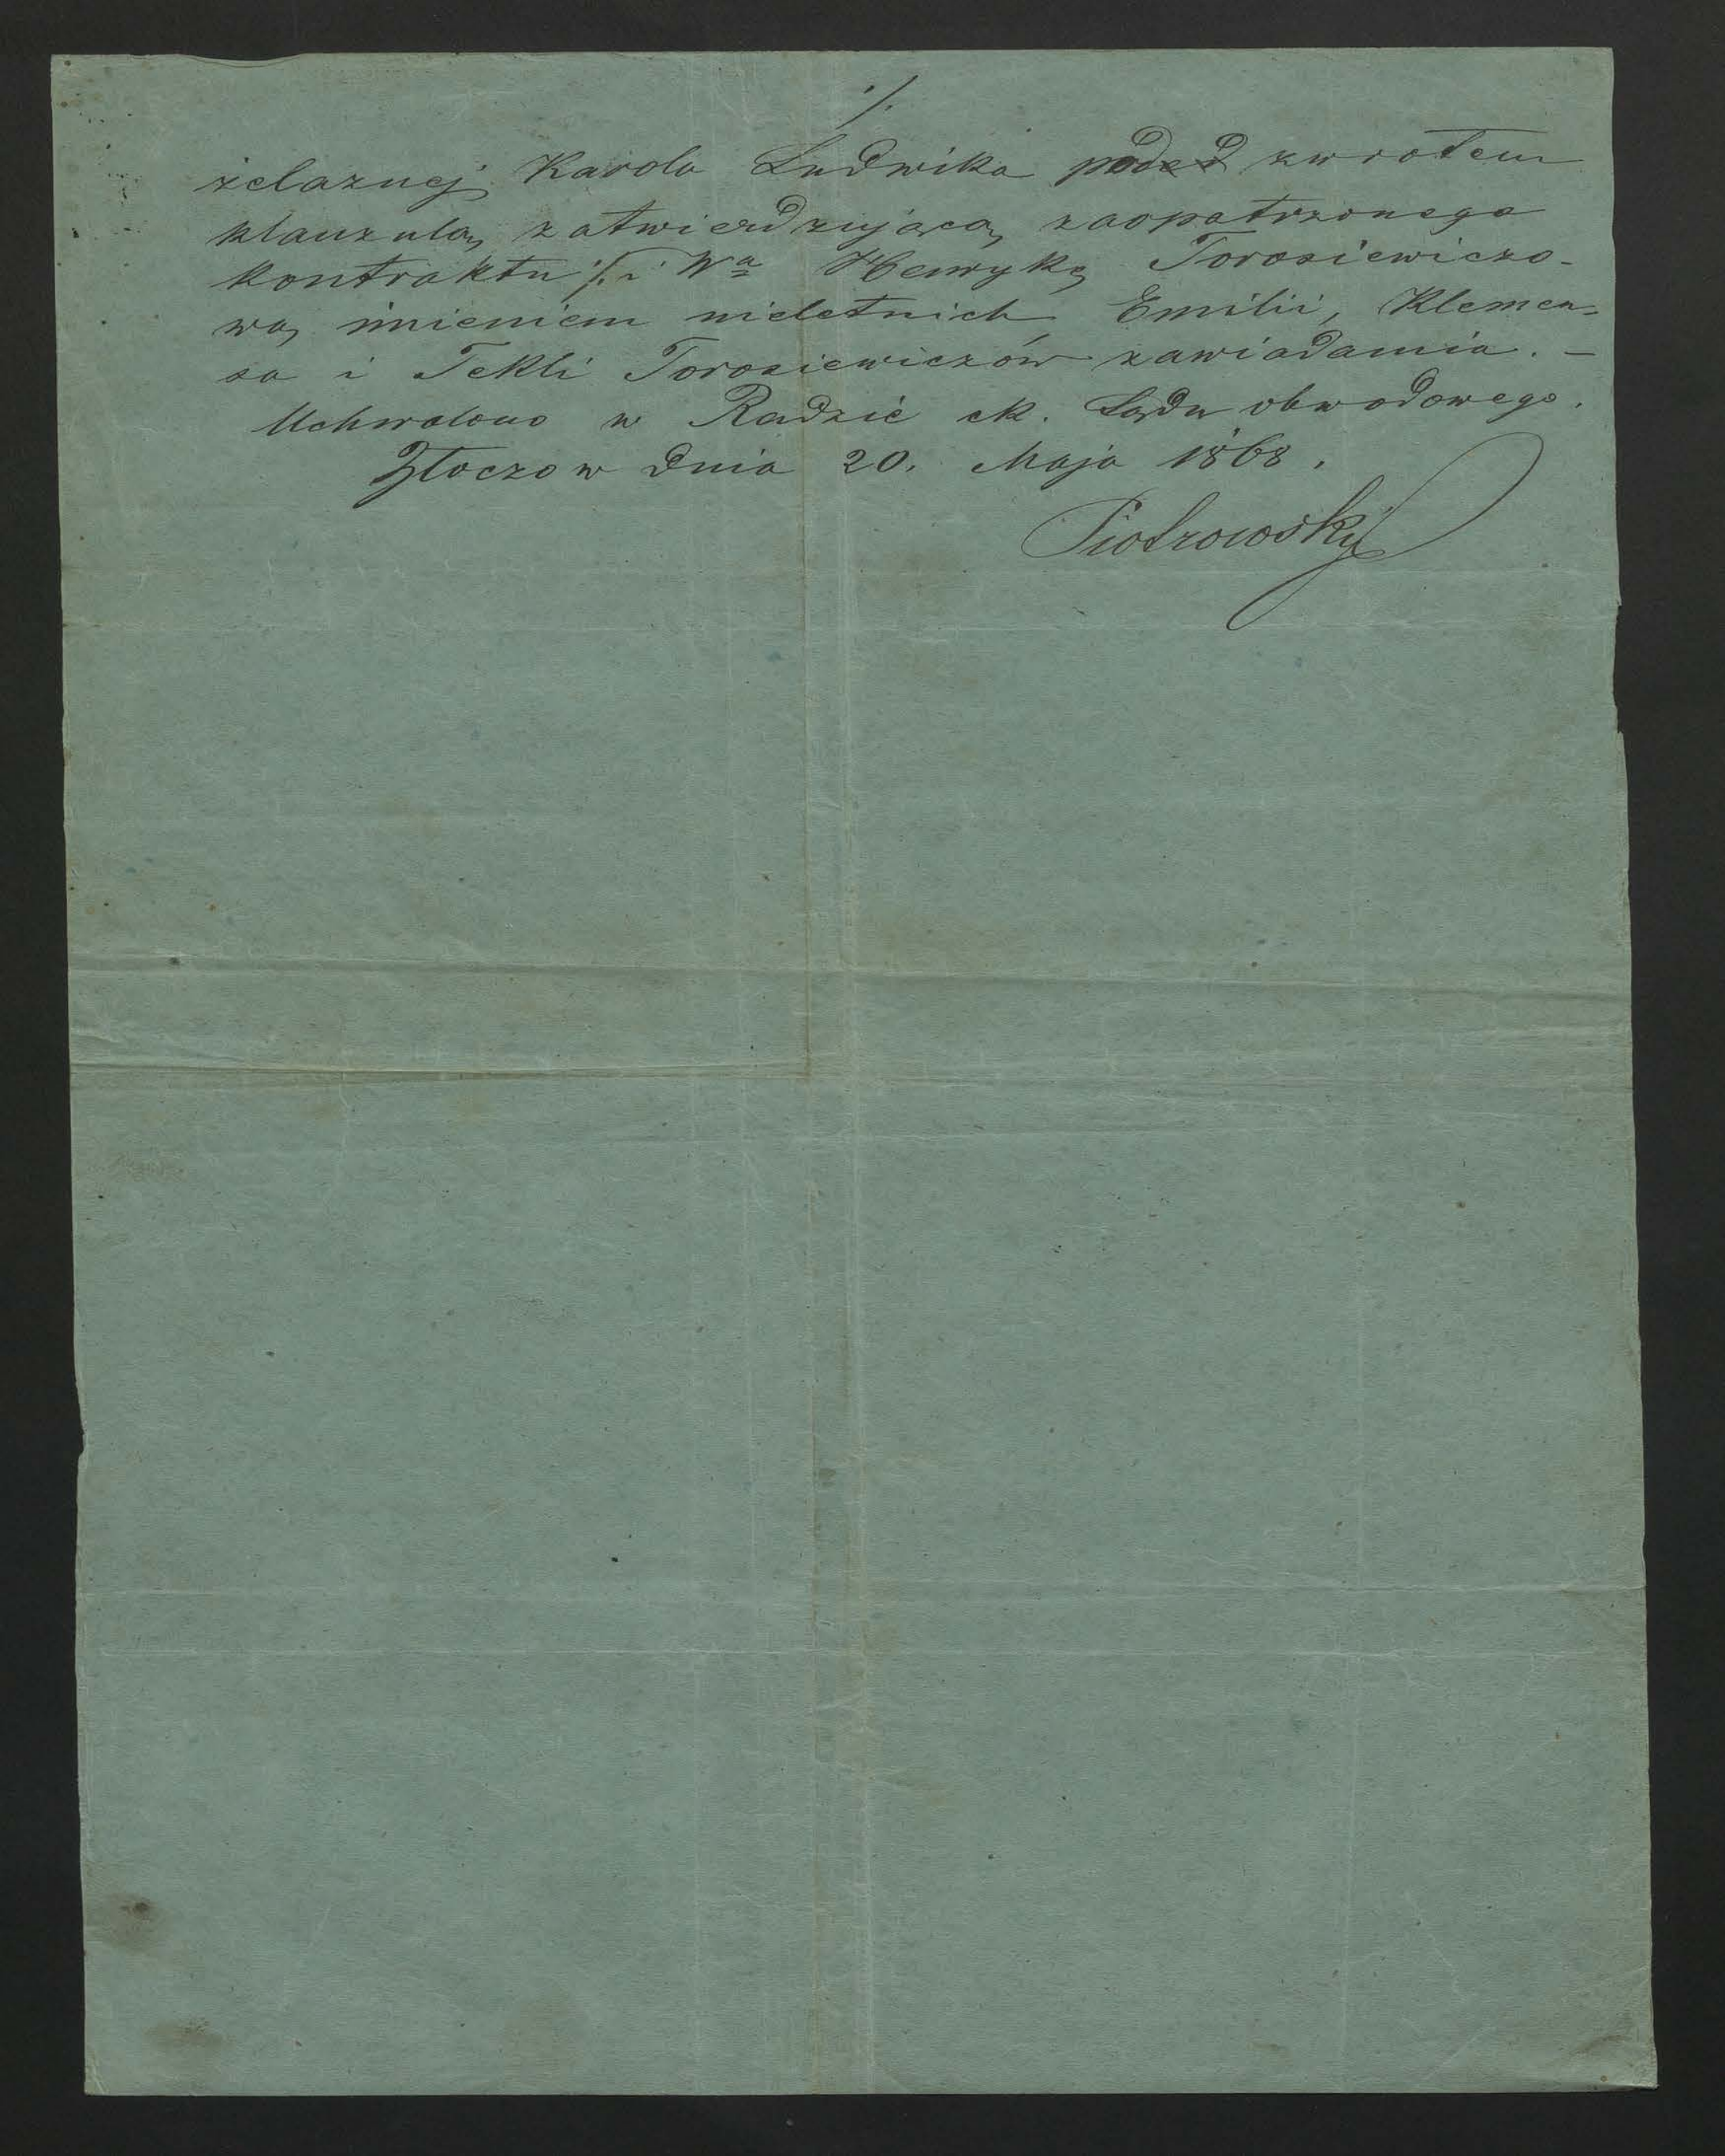 ·/.
żelaznej Karola Ludwika pod zwrotem
klauzulą zatwierdzującą zaopatrzonego
kontraktu ·/. i Wą Henrykę Torosiewiczo-
wą imieniem nieletnich Emilii, Klemen-
sa i Tekli Torosiewiczów zawiadamia. –
Uchwalono w Radzie ck. Sądu obwodowego.
Złoczow dnia 20. Maja 1868.
Piotrowski